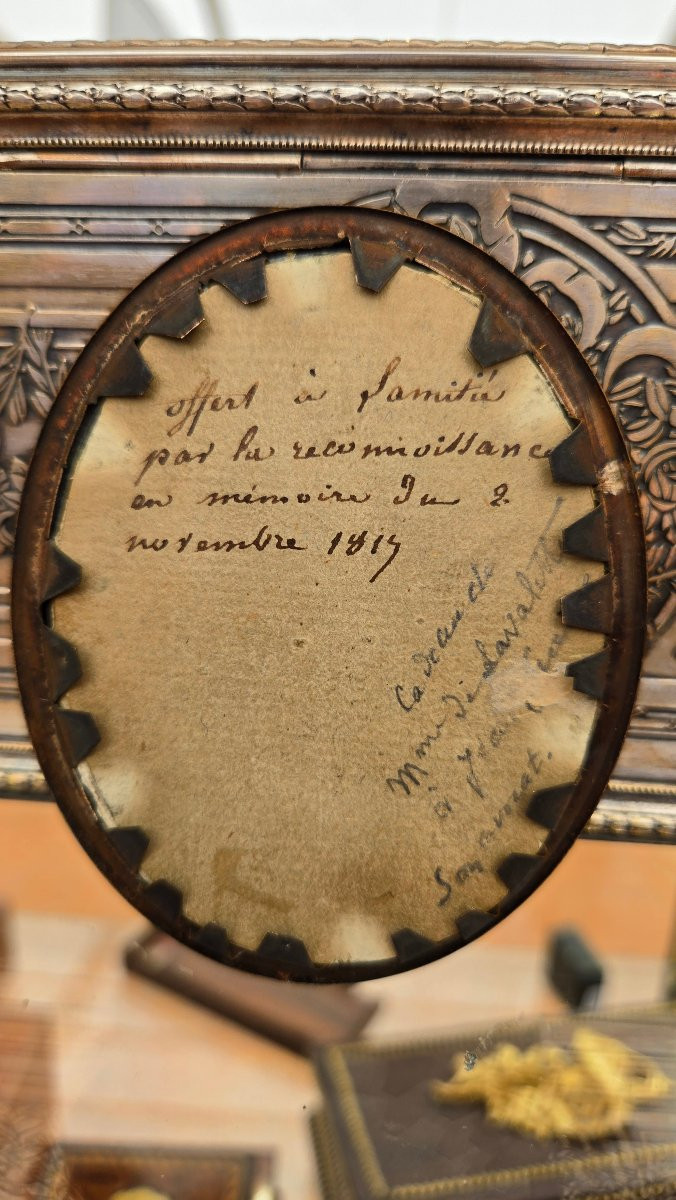 offert à l'amitié
par la reconnoissance
en mémoire du 2
novembre 1817
Cadeau de
Mme de Lavalette
à
son avocat.